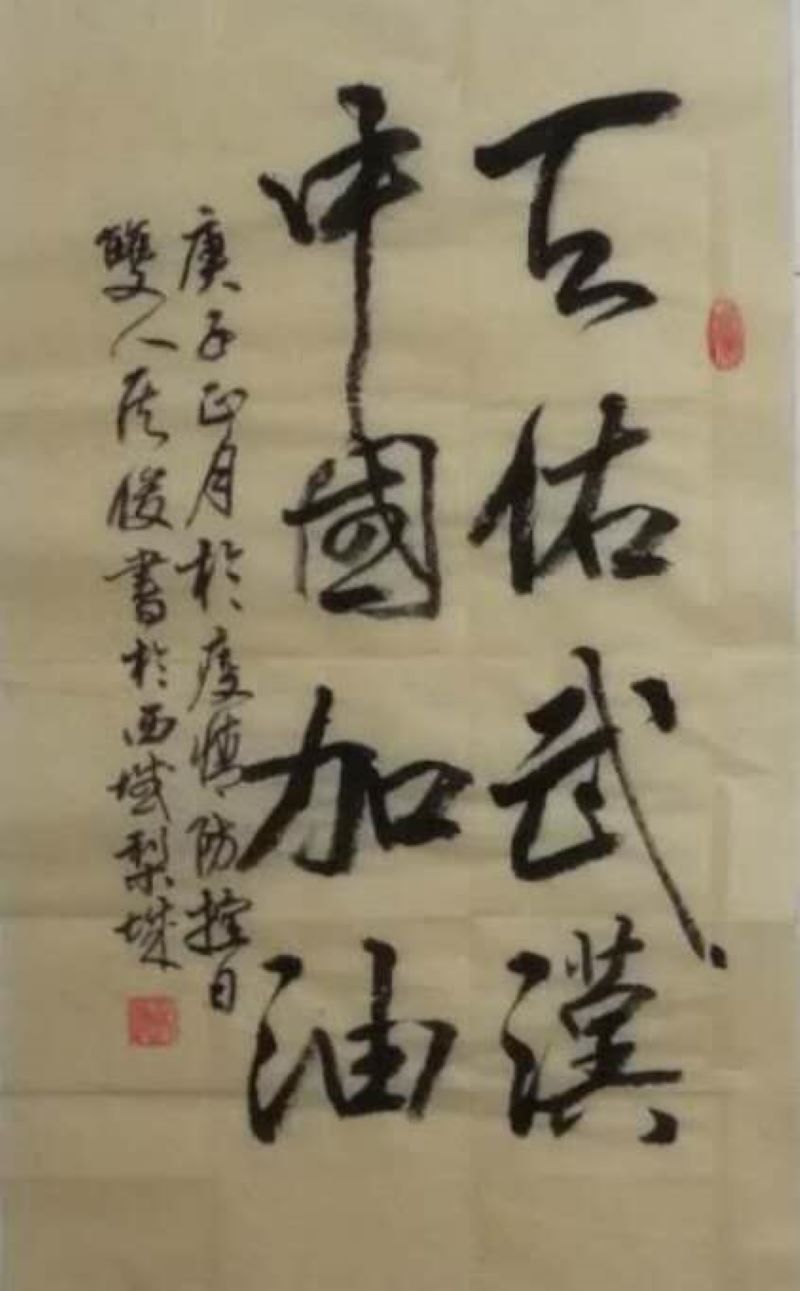 天佑武漢
中國加油
庚子正月於疫情防控日
雙人居俊書於西域梨城